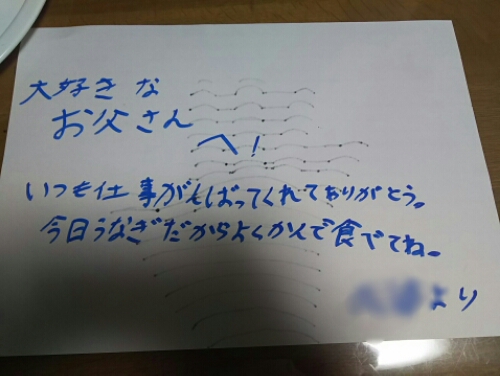 大好きな
お父さん
へ!
いつも仕事がんばってくれてありがとう。
今日うなぎだからよくかんで食べてね。
より